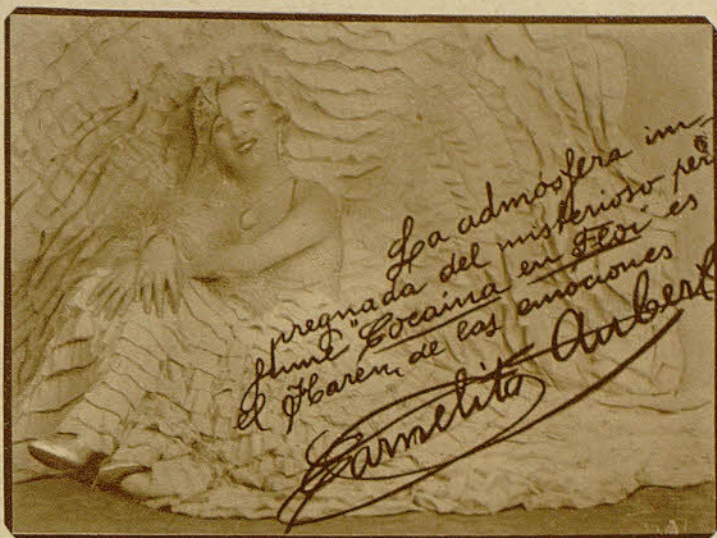 La admósfera im-
pregnada del misterioso per
fume "Cocaina en Flor" es
el Harem, de las emociones
Carmelita Aubert